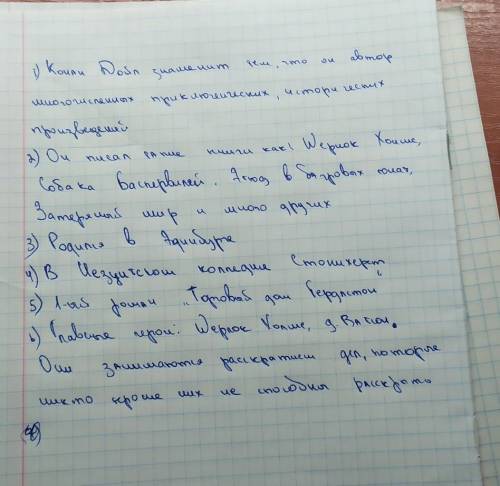 1) Конан Дойл знаменит тем, что он автор
многочисленных приключических, исторических
произведений
2) Он писал такие книги как: Шерлок Холмс,
Собака Баскервилей. Этюд в багровых тонах,
Затеряный мир и много других
3) Родился в Эдинбурге
4) В Иезуитском колледже Стонихерст
5) 1-ый роман "Торговый дом Гердлстон
6) Главные герои: Шерлок Холмс, д. Ватсон.
Они занимаются раскрытием дел, которые
никто кроме них не способны раскрыть